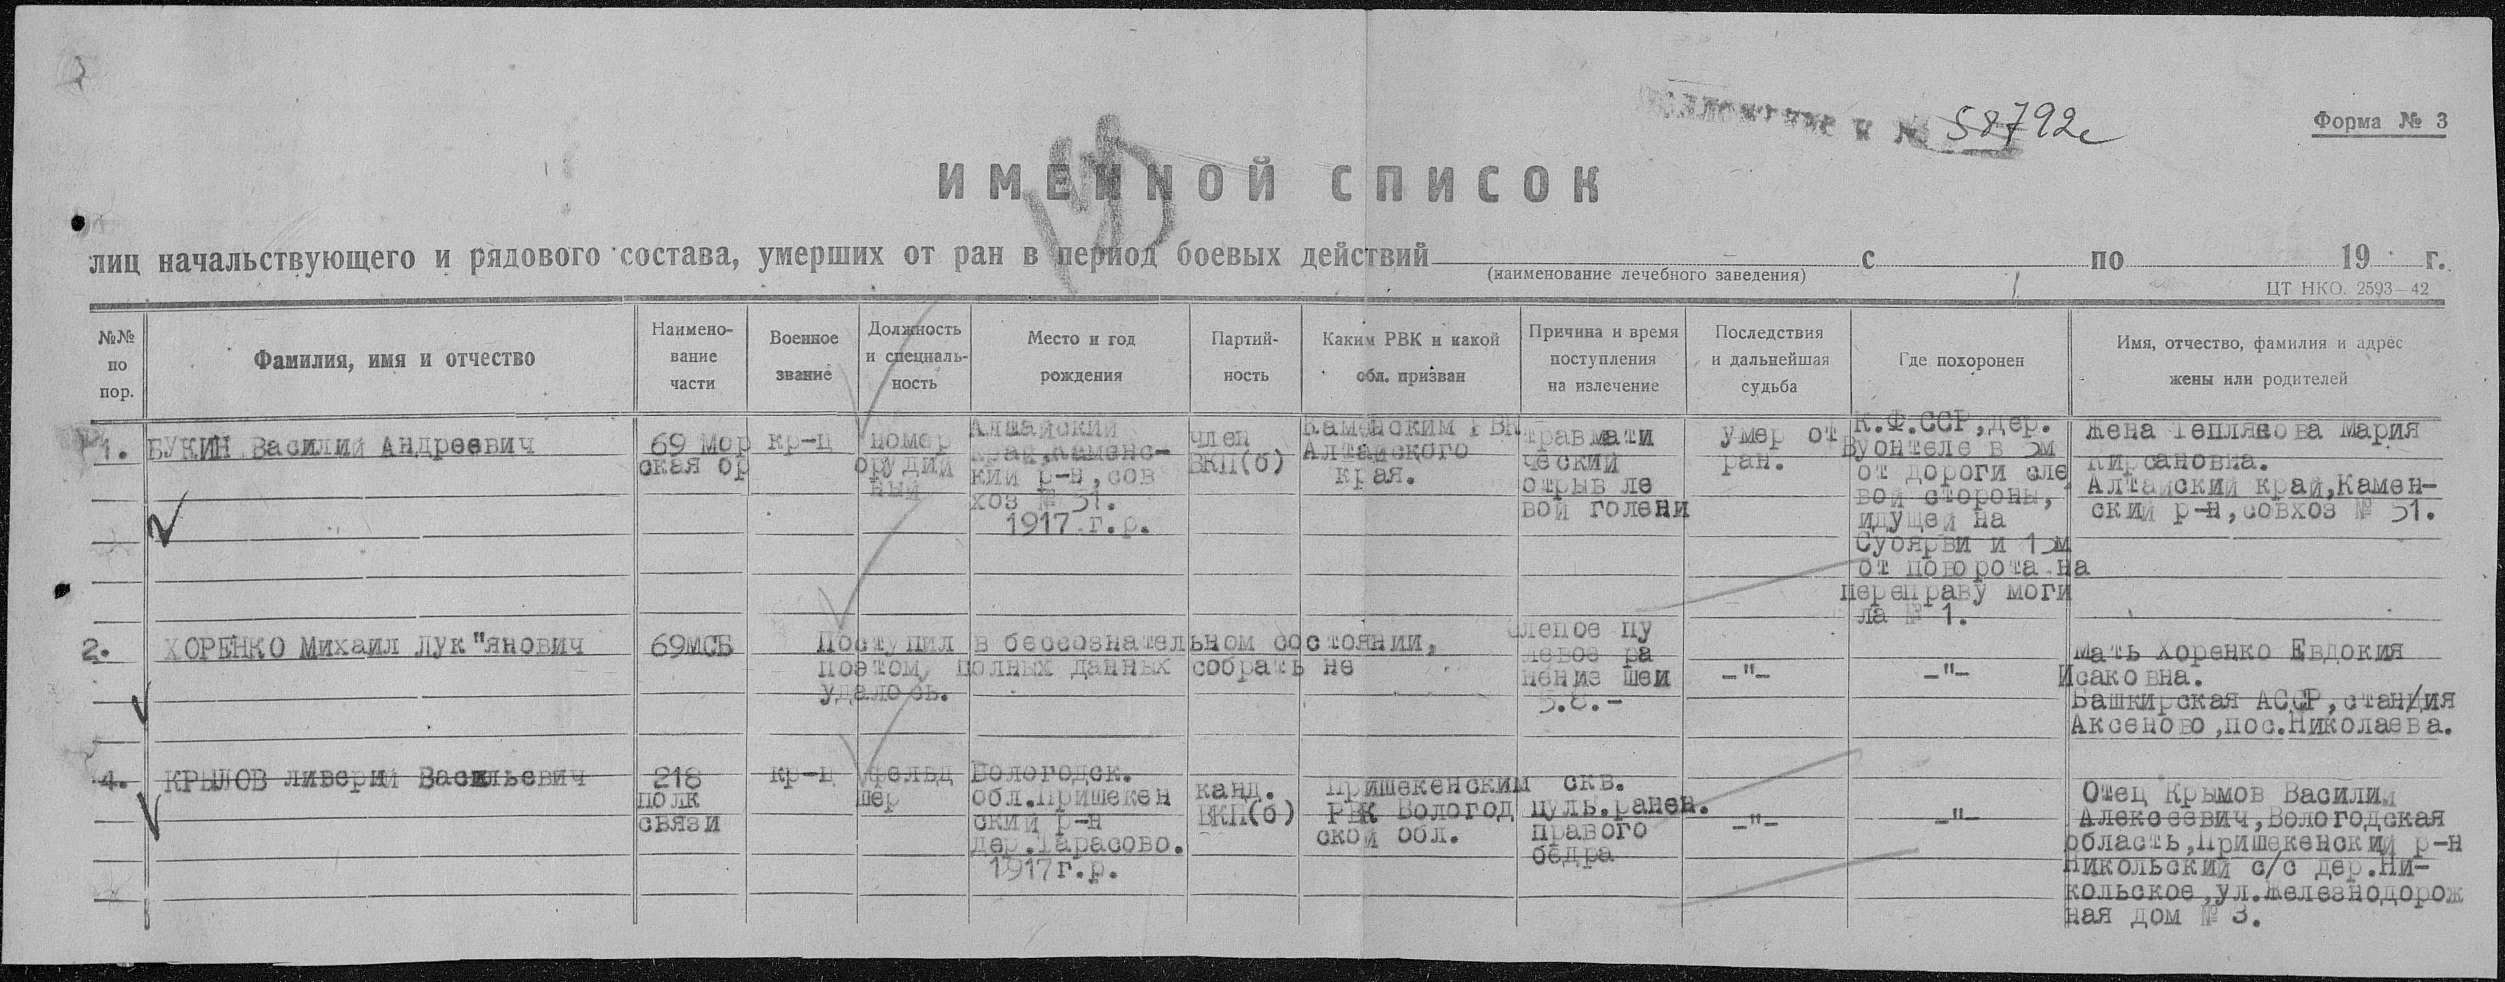 58792с
Форма № 3
ИМЕННОЙ СПИСОК
лиц начальствующего и рядового состава, умерших от ран в период боевых действий с по 19 г.
(наименование лечебного заведения)
ЦТ НКО. 2593—42
№№
по
пор.
Фамилия, имя и отчество
Наимено-
вание
части
Военное
звание
Должность
и специаль-
ность
Место и год
рождения
Партий-
ность
Каким РВК и какой
обл. призван
Причина и время
поступления
на излечение
Последствия
и дальнейшая
судьба
Где похоронен
Имя, отчество, фамилия и адрес
жены или родителей
1.
БУКИН Василий Андреевич
69 мор
ская бр
кр-ц
номер
орудий
ный
Алтайский
край,Каменс-
кий р-н,сов
хоз № 51.
1917.г.р.
член
ВКП(б)
Каменским РВК
Алтайского
края.
травмати
ческий
отрыв ле
вой голени
умер от
ран.
К.Ф.ССР,дер.
Вуонтеле в 5м
от дороги сле
вой стороны,
идущей на
Суоярви и 15м
от поворота на
переправу моги
ла № 1.
Жена Теплякова Мария
Кирсановна.
Алтайский край,Камен-
ский р-н,совхоз № 51.
2.
ХОРЕНКО Михаил Лук"янович
69МСБ
Поступил в бессознательном состоянии,
поэтому полных данных собрать не
удалось.
слепое пу
левое ра
нениз шеи
5.8.-
-"-
-"-
Мать Хоренко Евдокия
Исаковна.
Башкирская АССР,станция
Аксеново,пос.Николаева.
4.
КРЫЛОВ Ливерий Васильевич
218
полк
связи
кр-ц
фельд
шер
Вологодск.
обл.Пришекен
ский р-н
дер.Тарасово.
1917г.р.
канд.
ВКП(б)
Пришекенским
РВК Вологод
ской обл.
скв.
пуль.ранен.
правого
бедра
-"-
-"-
Отец Крымов Василий
Алексеевич,Вологодская
область,Пришекенский р-н
Никольский с/с дер.Ни-
кольское,ул.Железнодорож
ная дом № 3.